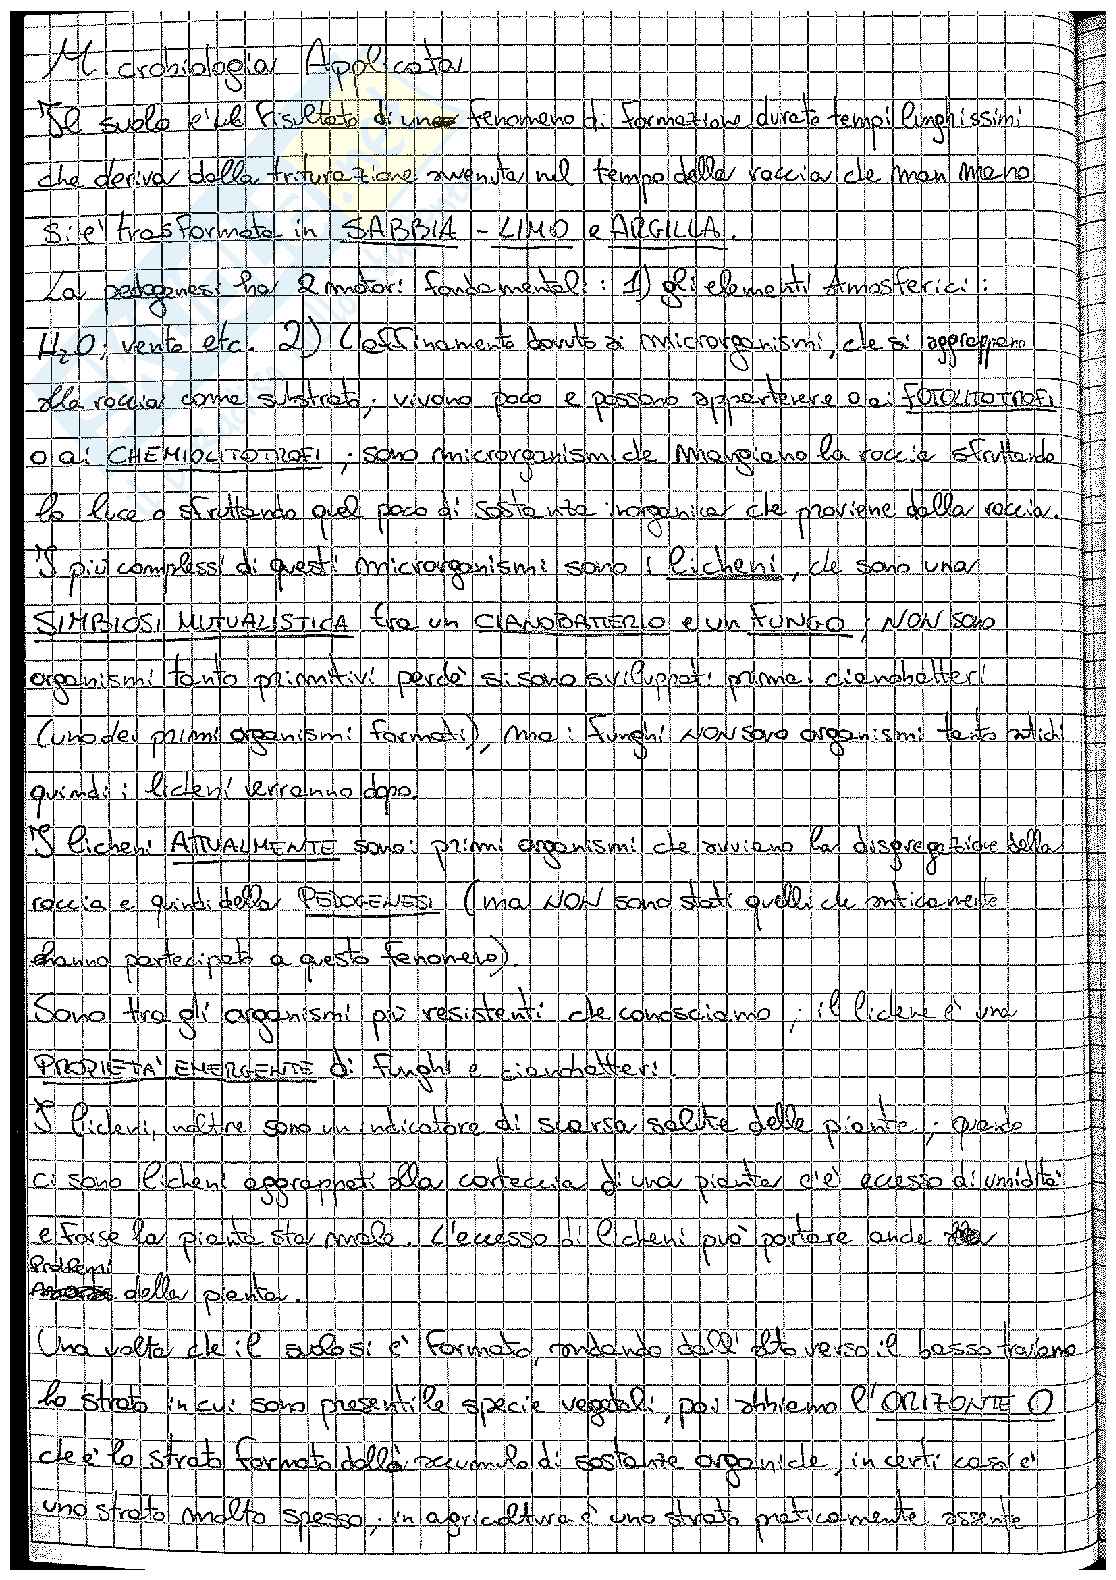 Microbiologia Applicata
Il suolo è il risultato di un fenomeno di formazione durato tempi lunghissimi
che deriva dalla triturazione avvenuta nel tempo della roccia che man mano
si è trasformata in SABBIA - LIMO e ARGILLA.
La pedogenesi ha 2 motori fondamentali: 1) gli elementi Amosferici:
H2O; vento etc. 2) L'affinamento dovuto ai microrganismi, che si aggrappano
alla roccia come substrato; vivono poco e possono appartenere o ai FOTOLITOTROFI
o ai CHEMIOLITOTROFI; sono microrganismi che mangiano la roccia sfruttando
la luce o sfruttando quel poco di sostanza inorganica che proviene dalla roccia.
I più complessi di questi microrganismi sono i licheni, che sono una
SIMBIOSI MUTUALISTICA tra un CIANOBATTERIO e un FUNGO; NON sono
organismi tanto primitivi perché si sono sviluppati prima i cianobatteri
(uno dei primi organismi formati), ma i funghi NON sono organismi tanto antichi
quindi i licheni verranno dopo.
I licheni ATTUALMENTE sono i primi organismi che avviano la disgregazione della
roccia e quindi della PEDOGENESI (ma NON sono stati quelli che anticamente
hanno partecipato a questo fenomeno).
Sono tra gli organismi più resistenti che conosciamo; il lichene è una
PROPRIETA' EMERGENTE di funghi e cianobatteri.
I licheni, inoltre sono un indicatore di scarsa salute delle piante; quando
ci sono licheni aggrappati alla corteccia di una pianta c'è eccesso di umidità
e forse la pianta sta male. L'eccesso di licheni può portare anche
problemi
della pianta.
Una volta che il suolo si è formato, andando dall'alto verso il basso troviamo
lo strato in cui sono presenti le specie vegetali, poi abbiamo l'ORIZZONTE O
che è lo strato formato dall'accumulo di sostanze organiche, in certi casi è
uno strato molto spesso; in agricoltura è uno strato praticamente assente